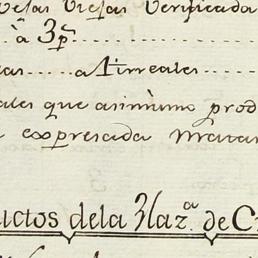 Velas Viejas Verificada
à 3 p.s
as..... a 4 irreales.....
ales que asimismo prod
a expresada Matan
uctos dela Haz.a de C